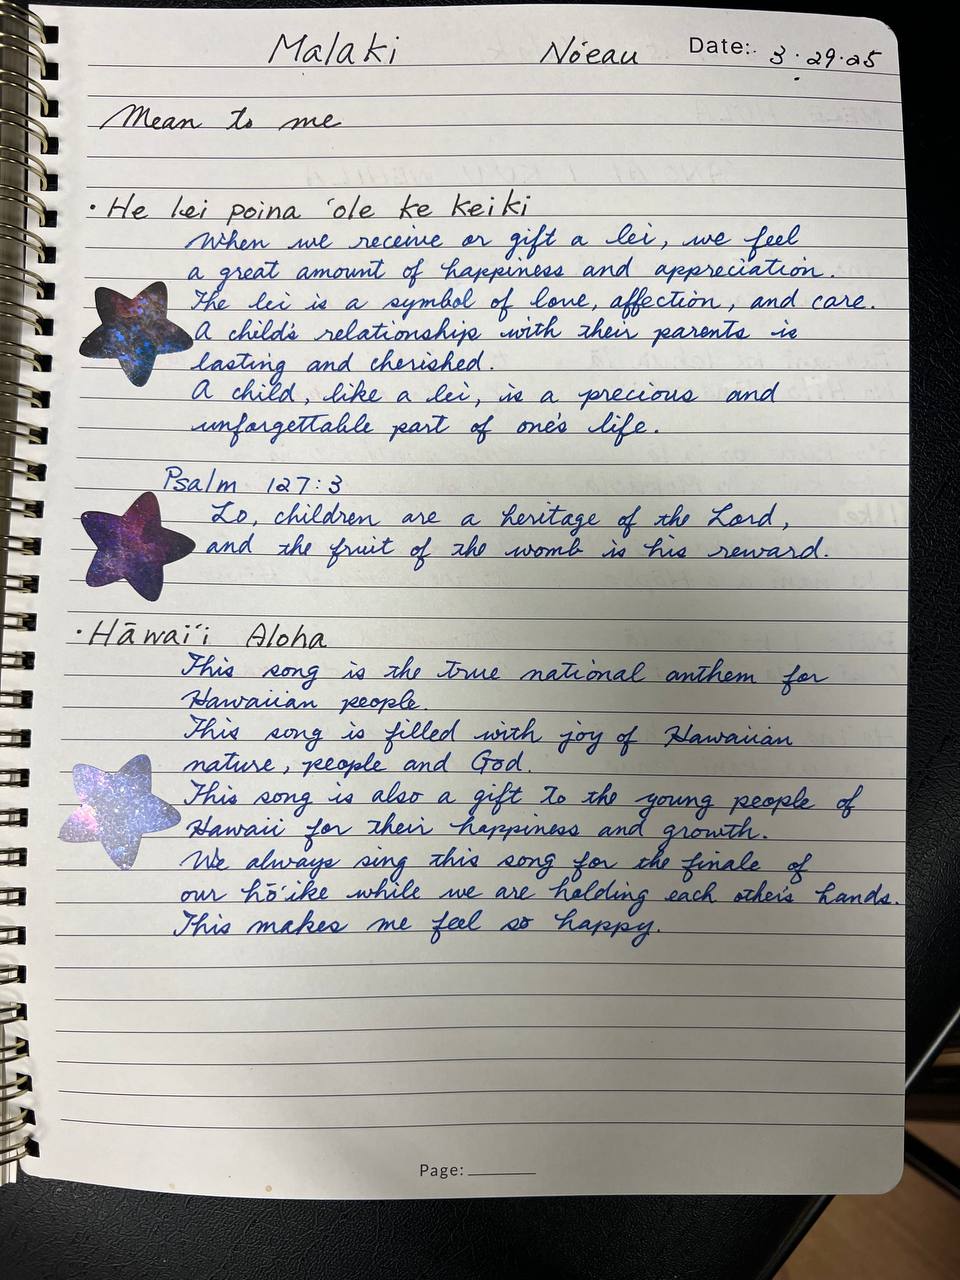 Malaki Nóeau Date: 3.29.25
Mean to me
· He lei poina ʻole ke keiki
When we receive or gift a lei, we feel
a great amount of happiness and appreciation.
The lei is a symbol of love, affection, and care.
A child's relationship with their parents is
lasting and cherished.
A child, like a lei, is a precious and
unforgettable part of one's life.
Psalm 127:3
Lo, children are a heritage of the Lord,
and the fruit of the womb is his reward.
· Hāwaiʻi Aloha
This song is the true national anthem for
Hawaiian people.
This song is filled with joy of Hawaiian
nature, people and God.
This song is also a gift to the young people of
Hawaii for their happiness and growth.
We always sing this song for the finale of
our hōʻike while we are holding each other's hands.
This makes me feel so happy.
Page: